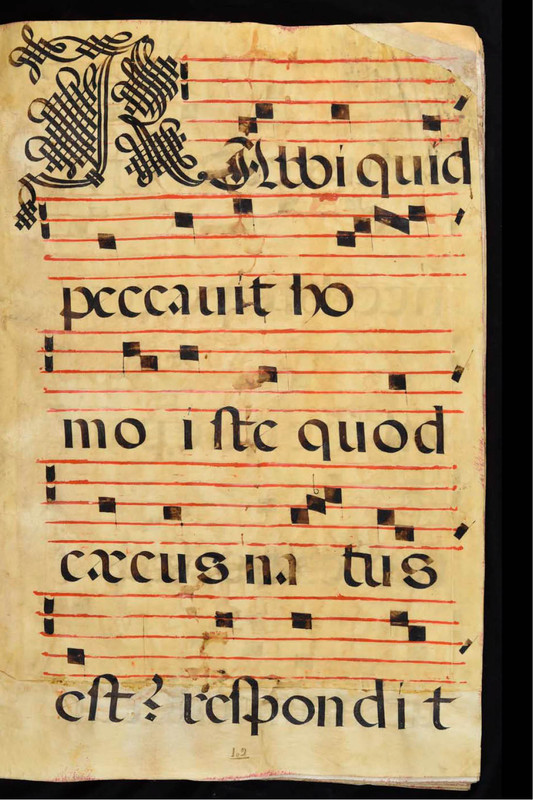 RAbbi quid
peccauit ho
mo iste quod
cæcus na tus
est? respondit